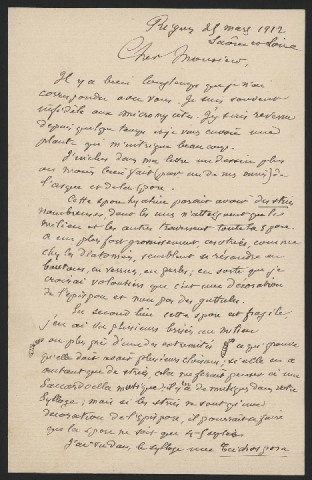 Rigny 25 mars 1912
Saône et Loire
Cher Monsieur,
Il y a bien longtemps que je n'ai
correspondu avec vous. Je suis souvent
infidèle aux micromycètes. J'y suis revenu
depuis quelque temps et je vous envoie une
plante qui m'intrigue beaucoup.
J'inclus dans ma lettre un dessin plus
ou moins bien fait (par un de mes amis) de
l'asque et de la spore.
Cette spore hyaline paraît avoir des stries
nombreuses dont les unes n'atteignent que le
milieu et les autres traversent toute la spore.
A un plus fort grossissement, ces stries, comme
chez les diatomées, semblent se résoudre en
boutons, en verrues, en perles; en sorte que je
croirai volontiers que c'est une décoration
de l'épispore et non pas des guttules.
En second lieu cette spore est fragile
j'en ai vu plusieurs brisées au milieu
ou plus près d'une des extrémités ce qui prouve
qu'elle doit avoir plusieurs cloisons, si elle en a
autant que de stries, cela me ferait penser à une
il y a de mutique dans votre
Sylloge; mais si les stries ne sont qu'une
décoration de l'épispore, il pourrait se faire
que la spore ne soit que
J'ai vu dans le sylloge une Trichospora